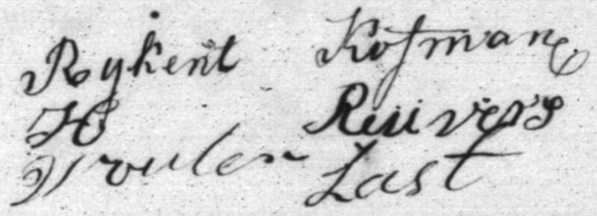 Rykent Kofman
H Reuvers
Wouter Last